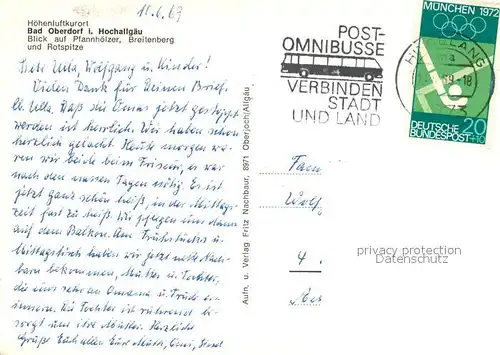 11.6.69
Höhenluftkurort
Bad Oberdorf i. Hochallgäu
Blick auf Pfannhölzer, Breitenberg
und Rotspitze
Liebe Ulla, Wolfgang u. Kinder!
Vielen Dank für Deinen Brief,
lb. Ulla. Daß die Omas jetzt gestoppt
werden ist herrlich. Wir haben schon
herzlich gelacht. Heute morgen wa-
ren wir beide beim Friseur, er war
nach den nassen Tagen nötig. Es ist
jetzt ganz schön heiß, in der Mittags-
zeit fast zu heiß. Wir pflegen uns dann
auf dem Balkon. Am Frühstücks u.
Mittagstisch haben wir jetzt nette Nach-
barn bekommen, Mutter u. Tochter,
die uns sehr an Omama u. Trude er-
innern. Die Tochter ist rührend be-
sorgt um ihre Mutter. Herzliche
Grüße Euch allen Eure
Aufn. u. Verlag Fritz Nachbaur, 8971 Oberjoch/Allgäu
POST-
OMNIBUSSE
VERBINDEN
STADT
UND LAND
MÜNCHEN 1972
DEUTSCHE
BUNDESPOST
20
+10
Fam
Wolf
4
privacy protection
Datenschutz